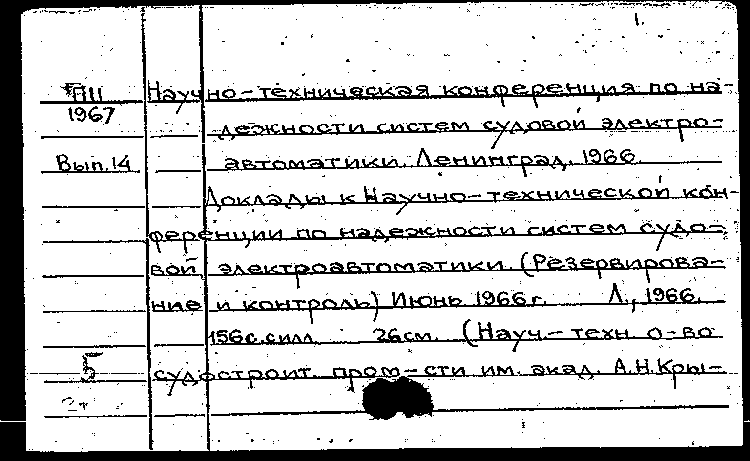 1.
П11 Научно-техническая конференция по на-
1967 дежности систем судовой электро-
Вып.14 автоматики. Ленинград. 1966
Доклады к Научно-технической кон-
ференции по надежности систем судо-
вой электроавтоматики. (Резервирова-
ние и контроль) Июнь 1966г. Л., 1966.
156с.силл. 26см. (Науч.-техн. о-во
5 судостроит. пром-сти им. акад. А.Н.Кры-
2т